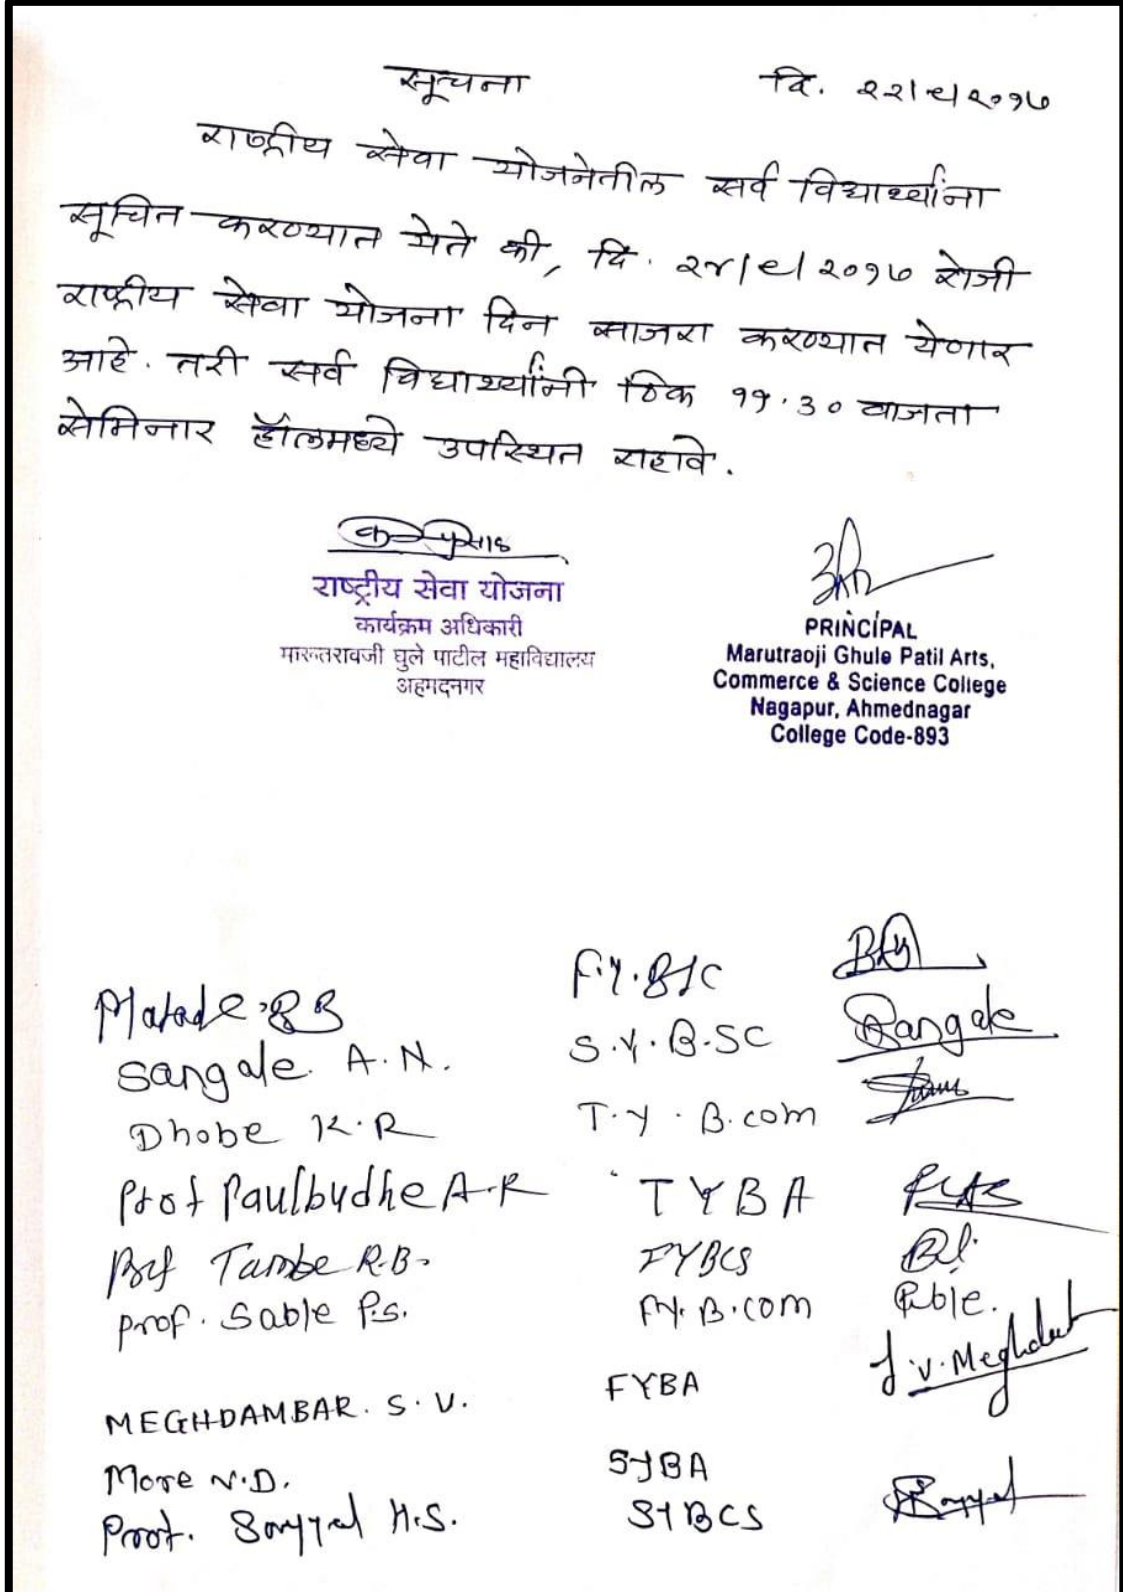 सूचना दि. २२/९/२०१७
राष्ट्रीय सेवा योजनेतील सर्व विद्यार्थ्यांना
सूचित करण्यात येते की, दि. २४/९/२०१७ रोजी
राष्ट्रीय सेवा योजना दिन साजरा करण्यात येणार
आहे. तरी सर्व विद्यार्थ्यांनी ठिक ११.३० वाजता
सेमिनार हॉलमध्ये उपस्थित राहावे.
राष्ट्रीय सेवा योजना
कार्यक्रम अधिकारी
मारूतरावजी घुले पाटील महाविद्यालय
अहमदनगर
PRINCIPAL
Marutraoji Ghule Patil Arts,
Commerce & Science College
Nagapur, Ahmednagar
College Code-893
F.Y.BSC
Sangale. A.N. S.Y.B.SC Sangale
Dhobe K.R T.Y. B.com
Prof Paulbudhe A.R TYBA
Prof Tambe R.B. FYBCS
Prof. Sable P.S. F.Y. B.COM
MEGHDAMBAR. S. V. FYBA
More N.D. SYBA
Prof. H.S. SYBCS